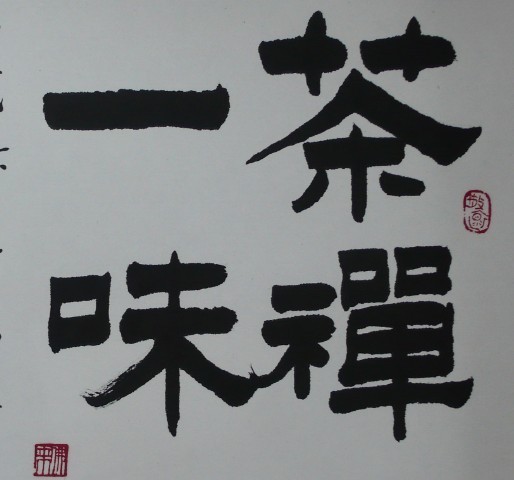 茶禪
一味